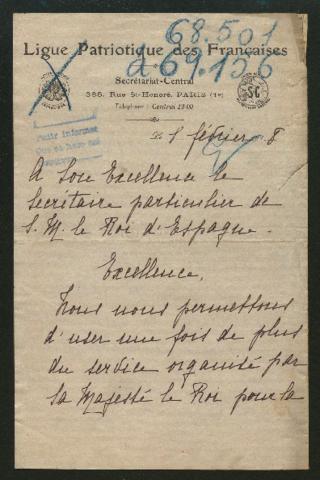 68.501
Ligue Patriotique des Françaises
d.69.156
Secrétariat-Central
368, Rue St-Honoré, PARIS (1er)
Téléphone : Central
SC
Pedir informes
février 8
A Son Excellence le
Secrétaire particulier de
S. M. le Roi d'Espagne.
Excellence,
Nous nous permettons
d'user une fois de plus
du service organisé par
Sa Majesté le Roi pour la